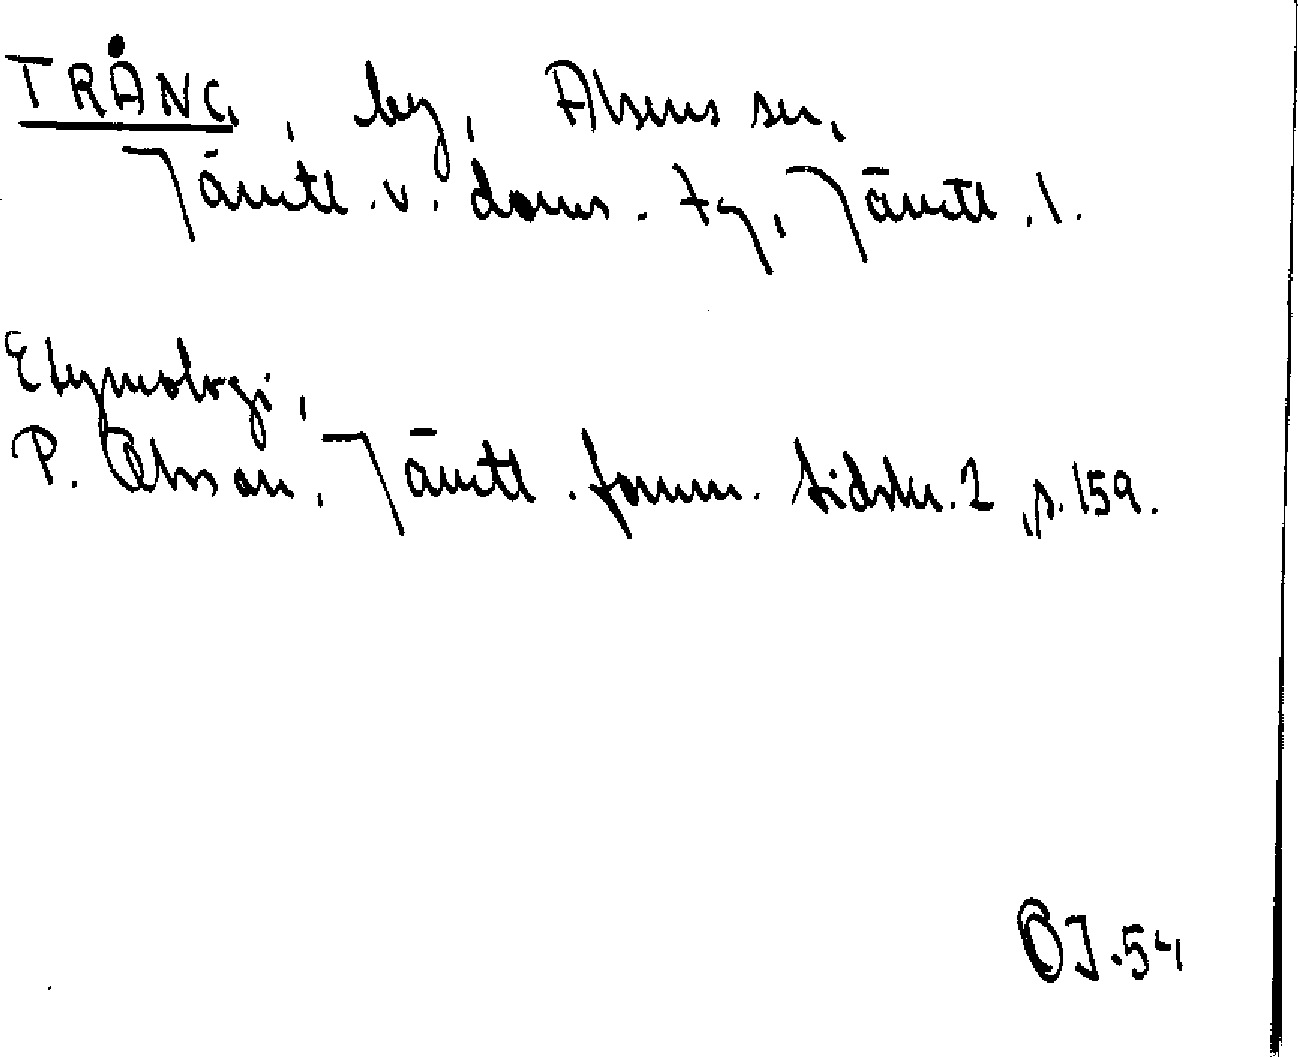 TRÅNG, by, Alsens sn,
Jämtl. v. doms. tg, Jämtl. l.
Etymologi,
P. Olsson, Jämtl. fornm. tidskr. 2, s. 159.
OJ.54